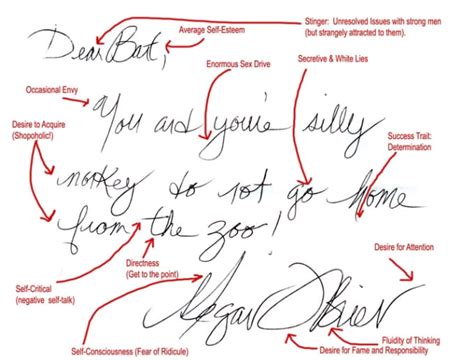 Stinger: Unresolved Issues with strong men
(but strangely attracted to them).
Average Self-Esteem
Dear Bart,
Enormous Sex Drive
Secretive & White Lies
Occasional Envy
You and you're silly
Desire to Acquire
(Shopoholic!)
Success Trait:
Determination
monkey do not go home
from the zoo!
Directness
(Get to the point)
Desire for Attention
Self-Critical
(negative self-talk)
Megan O'Brien
Fluidity of Thinking
Self-Consciousness (Fear of Ridicule)
Desire for Fame and Responsibility